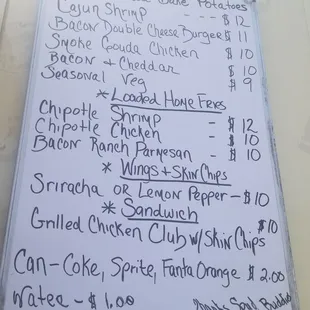 Potatoes
Cajun Shrimp - - - $12
Bacon Double Cheese Burger $11
Smoke Gouda Chicken $10
Bacon + Cheddar $10
Seasonal Veg $9
* Loaded Home Fries
Chipotle Shrimp - $12
Chipotle Chicken - $10
Bacon Ranch Parmesan - $10
* Wings + Skin Chips
Sriracha or Lemon Pepper - $10
* Sandwich
Grilled Chicken Club w/ Skin Chips $10
Can - Coke, Sprite, Fanta Orange $2.00
Water - $1.00